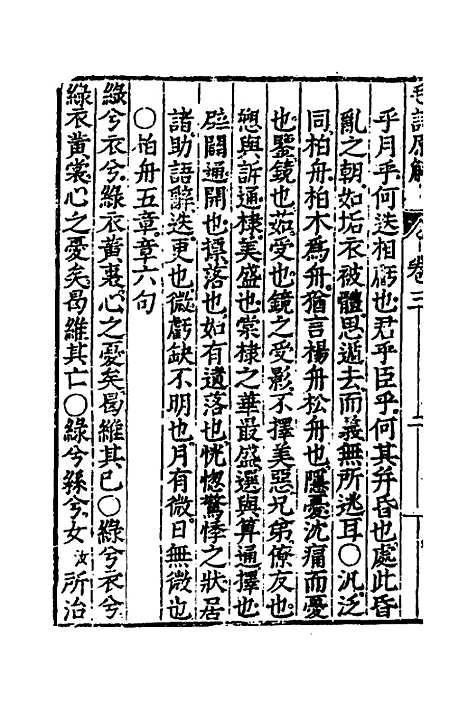 毛詩原解 卷三 二
乎月乎何迭相虧也君乎臣乎何其并昏也處此昏
亂之朝如垢衣被體思遁去而義無所逃耳〇汎泛
同柏舟柏木為舟猶言楊舟松舟也隱憂沈痛而憂
也鑒鏡也茹受也鏡之受影不擇美惡兄弟僚友也
愬與訴通棣美盛也棠棣之華最盛選與算通擇也
辟闢通開也摽落也如有遺落也恍惚驚悸之狀居
諸助語辭迭更也微虧缺不明也月有微日無微也
〇柏舟五章章六句
綠兮衣兮綠衣黃裏心之憂矣曷維其已〇綠兮衣兮
綠衣黃裳心之憂矣曷維其亡〇綠兮絲兮女汝所治